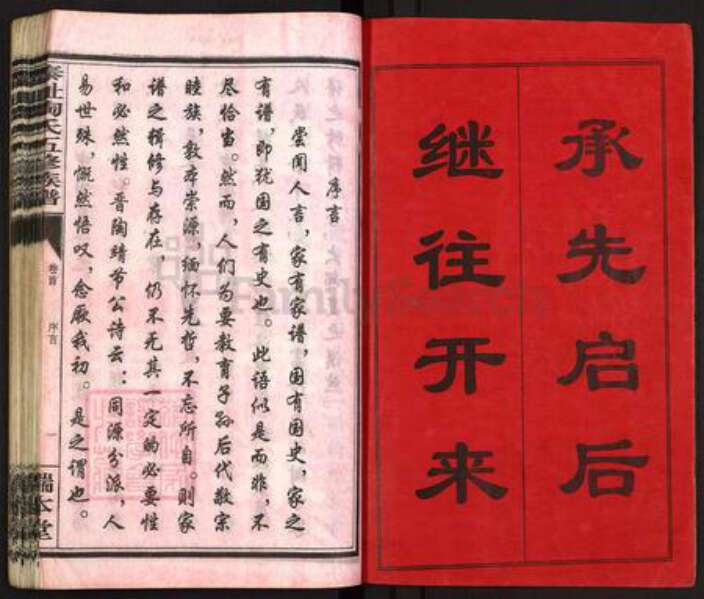 承先启后
继往开来
序言
尝闻人言，家有家谱，国有国史，家之
有谱，即犹国之有史也。此语似是而非，不
尽恰当。然而，人们为要教育子孙后代敬宗
睦族，敦本崇源，缅怀先哲，不忘所自。则家
谱之辑修与存在，仍不无其一定的必要性
和必然性。晋陶靖节公诗云：同源分派，人
易世殊，慨然悟叹，念厥我初。是之谓也。
陶氏五修族谱
卷首
序言
一
本堂
FamilySearch